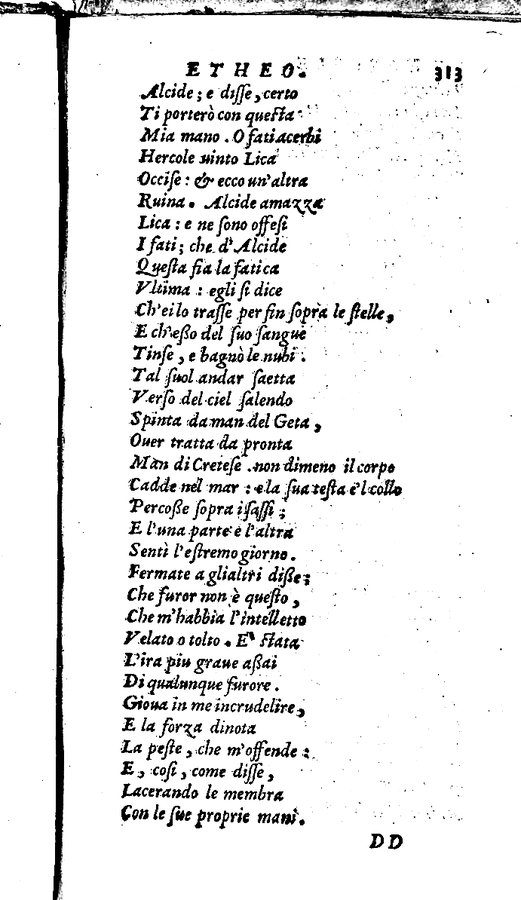 ETHEO. 313
Alcide; e disse, certo
Ti porterò con questa
Mia mano. O fati acerbi
Hercole uinto Lica
Occise: & ecco un'altra
Ruina. Alcide amazza
Lica: e ne sono offesi
I fati; che d'Alcide
Questa fia la fatica
Vltima: egli si dice
Ch'ei lo trasse per fin sopra le stelle,
E ch'esso del suo sangue
Tinse, e bagnò le nubi.
Tal suol andar saetta
Verso del ciel salendo
Spinta da man del Geta,
Ouer tratta da pronta
Man di Cretese. non dimeno il corpo
Cadde nel mar: e la sua testa e'l collo
Percosse sopra i sassi;
E l'una parte e l'altra
Sentì l'estremo giorno.
Fermate a gli altri disse;
Che furor non è questo,
Che m'habbia l'intelletto
Velato o tolto. E' stata
L'ira piu graue assai
Di qualunque furore.
Gioua in me incrudelire,
E la forza dinota
La peste, che m'offende:
E, cosi, come disse,
Lacerando le membra
Con le sue proprie mani.
DD